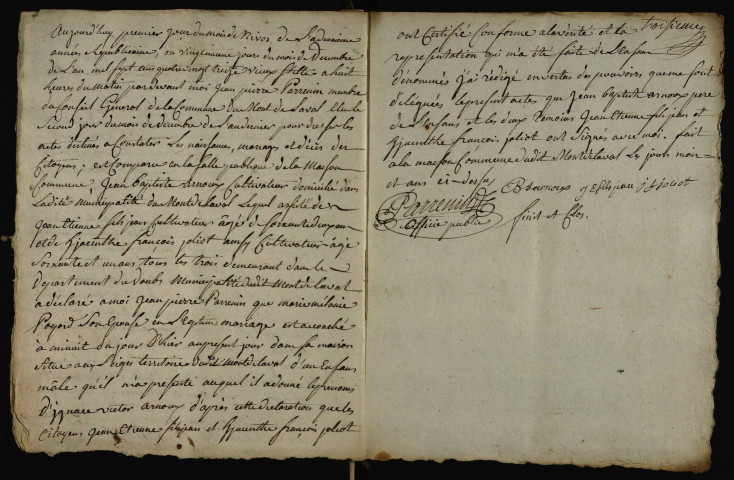 Aujourdhuy premier jour du mois de Nivos de L'a deuxieme
année Republicaine, ou vingtunieme jours du mois de Decembre
de L'an mil sept cens quatre vingt treize vieux stille a huit
heures du matin par devant moi jean pierre Parrenin membre
du Conseil General de la Commune du Mont de Laval Elu le
Second jour du mois de decembre de L'an dernier pour dresser les
actes destinés a Constater Les naissances, mariages et déces des
Citoyens; est Comparu en la salle publique de la Maison
Commune; Jean Baptiste arnoux Cultivateur domicilié dans
Ladite Municipalité du Mont de Laval Lequel assisté de
Jean Etienne filsjean Cultivateur âgé de soixante deux ans
et de hyacinthe françois joliot aussy Cultivateur âgé
soixante et un ans tous les trois demeurant dans le
Departement du Doubs Municipalité dudit Mont de laval
a déclaré a moi jean pierre Parrenin que marie mélanie
Pagord son Epouse en Legitime mariage est acouché
à minuit du jour D'hier au present jour dans sa maison
située aux Seignes territoire dudit Mont de laval d'un Enfans
mâle qu'il m'a presenté auquel il a donné les prenoms
d'jgnace victor arnoux d'après cette declaration que les
Citoyens jean Etienne filsjean et hyacinthe françois joliot
ont Certifié Conforme a la vérité et la troisieme
representation qui m'a été faite de L'enfans
dénommés j'ai rédigé en vertu des pouvoirs que me sont
délégués le present actes que jean baptiste arnoux pere
de L'enfans et les deux temoins jean Etienne filsjean et
hyacinthe françois joliot ont Signés avec moi. fait
a la maison Commune dudit Mont de laval Les jours mois
et ans ci-dessus
B arnoux j E filsjean j f joliot
Parrenin
Officié public
finit et Clos.